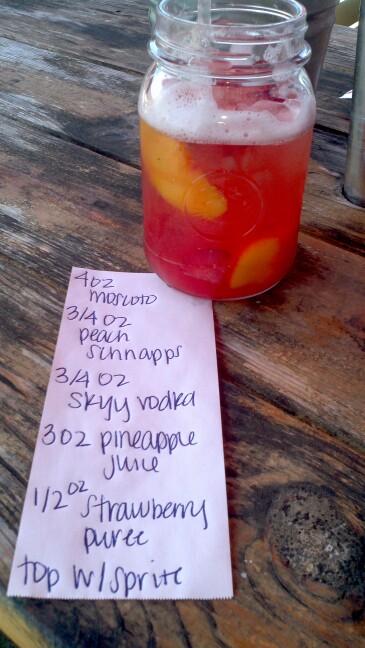 4oz
moscato
3/4 oz
peach
schnapps
3/4 oz
skyy vodka
3oz pineapple
juice
1/2 oz strawberry
puree
top w/sprite